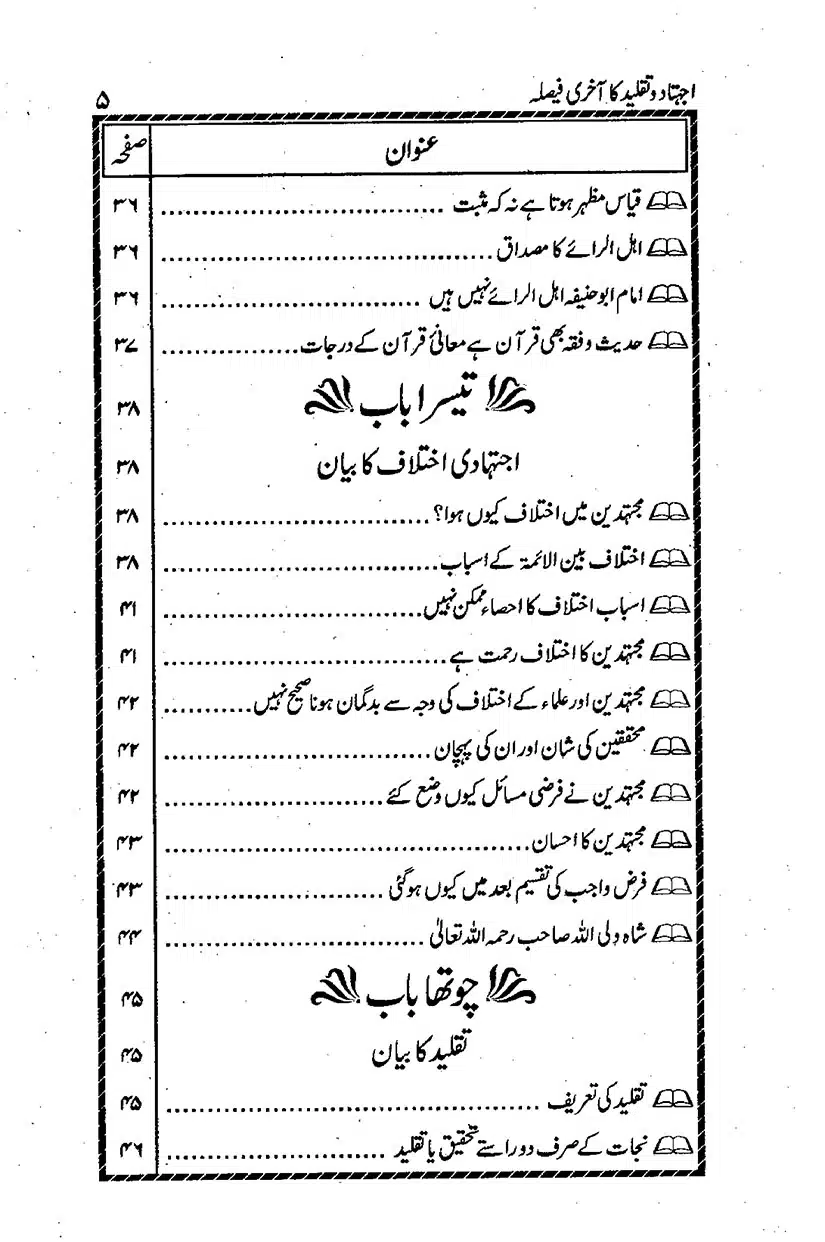 اجتہاد و تقلید کا آخری فیصلہ ۵
عنوان صفحہ
قیاس مظہر ہوتا ہے نہ کہ مثبت ........ ۳۶
اہل الرائے کا مصداق ........ ۳۶
امام ابو حنیفہ اہل الرائے نہیں ہیں ........ ۳۶
حدیث وفقہ بھی قرآن ہے معانیٔ قرآن کے درجات ........ ۳۷
تیسرا باب ۳۸
اجتہادی اختلاف کا بیان ۳۸
مجتہدین میں اختلاف کیوں ہوا؟ ........ ۳۸
اختلاف بین الائمۃ کے اسباب ........ ۳۸
اسباب اختلاف کا احصاء ممکن نہیں ........ ۴۱
مجتہدین کا اختلاف رحمت ہے ........ ۴۱
مجتہدین اور علماء کے اختلاف کی وجہ سے بدگمان ہونا صحیح نہیں ........ ۴۲
محققین کی شان اور ان کی پہچان ........ ۴۲
مجتہدین نے فرضی مسائل کیوں وضع کئے ........ ۴۲
مجتہدین کا احسان ........ ۴۳
فرض واجب کی تقسیم بعد میں کیوں ہوگئی ........ ۴۳
شاہ ولی اللہ صاحب رحمہ اللہ تعالیٰ ........ ۴۴
چوتھا باب ۴۵
تقلید کا بیان ۴۵
تقلید کی تعریف ........ ۴۵
نجات کے صرف دو راستے تحقیق یا تقلید ........ ۴۶